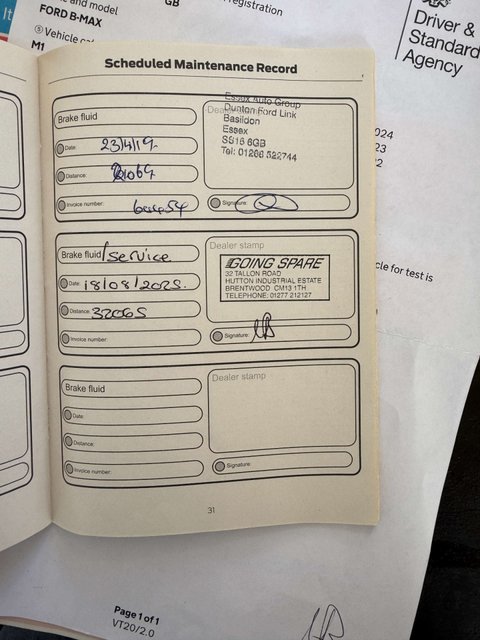 and model
FORD B-MAX
GB
registration
M1
Driver &
Standard
Agency
024
23
2
cle for test is
Scheduled Maintenance Record
Brake fluid
Date: 23/4/19
Distance:
Invoice number:
Dealer stamp
Essex Auto Group
Dunton Ford Link
Basildon
Essex
SS16 6GB
Tel: 01268 522744
Signature:
Brake fluid/service
Date: 18/08/2025.
Distance: 32065
Invoice number:
Dealer stamp
GOING SPARE
32 TALLON ROAD
HUTTON INDUSTRIAL ESTATE
BRENTWOOD CM13 1TH
TELEPHONE: 01277 212127
Signature:
Brake fluid
Date:
Distance:
Invoice number:
Dealer stamp
Signature:
31
Page 1 of 1
VT20/2.0